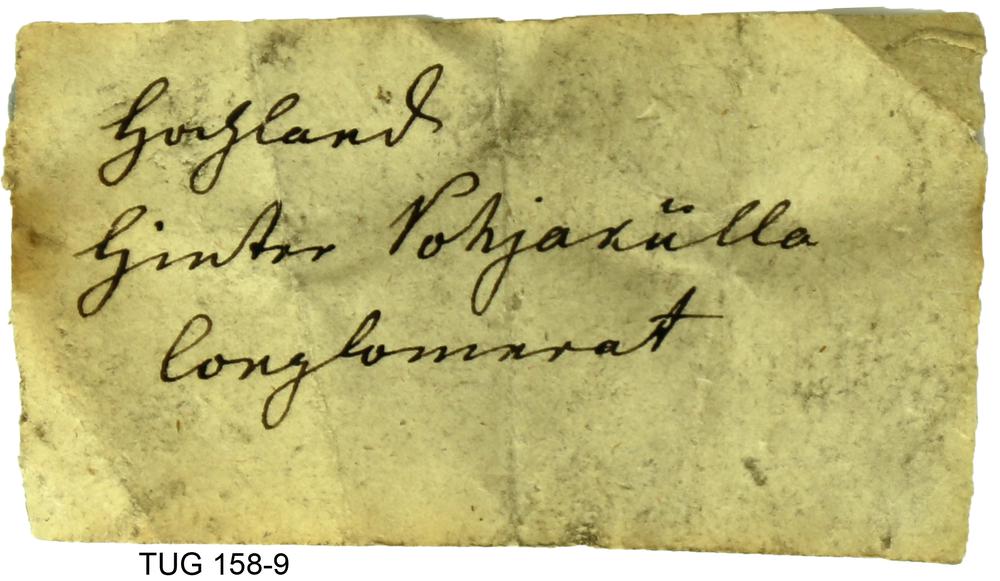 Hochland
Hinter Pohjakülla
Conglomerat
TUG 158-9